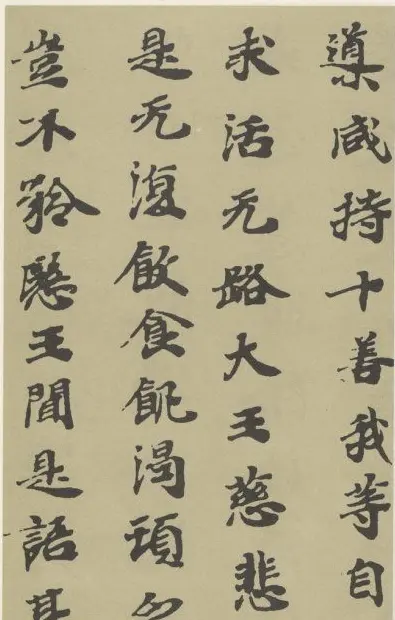 導咸持十善我等自
求活无路大王慈悲
是无復飲食飢渴頓
豈不矜愍王聞是語